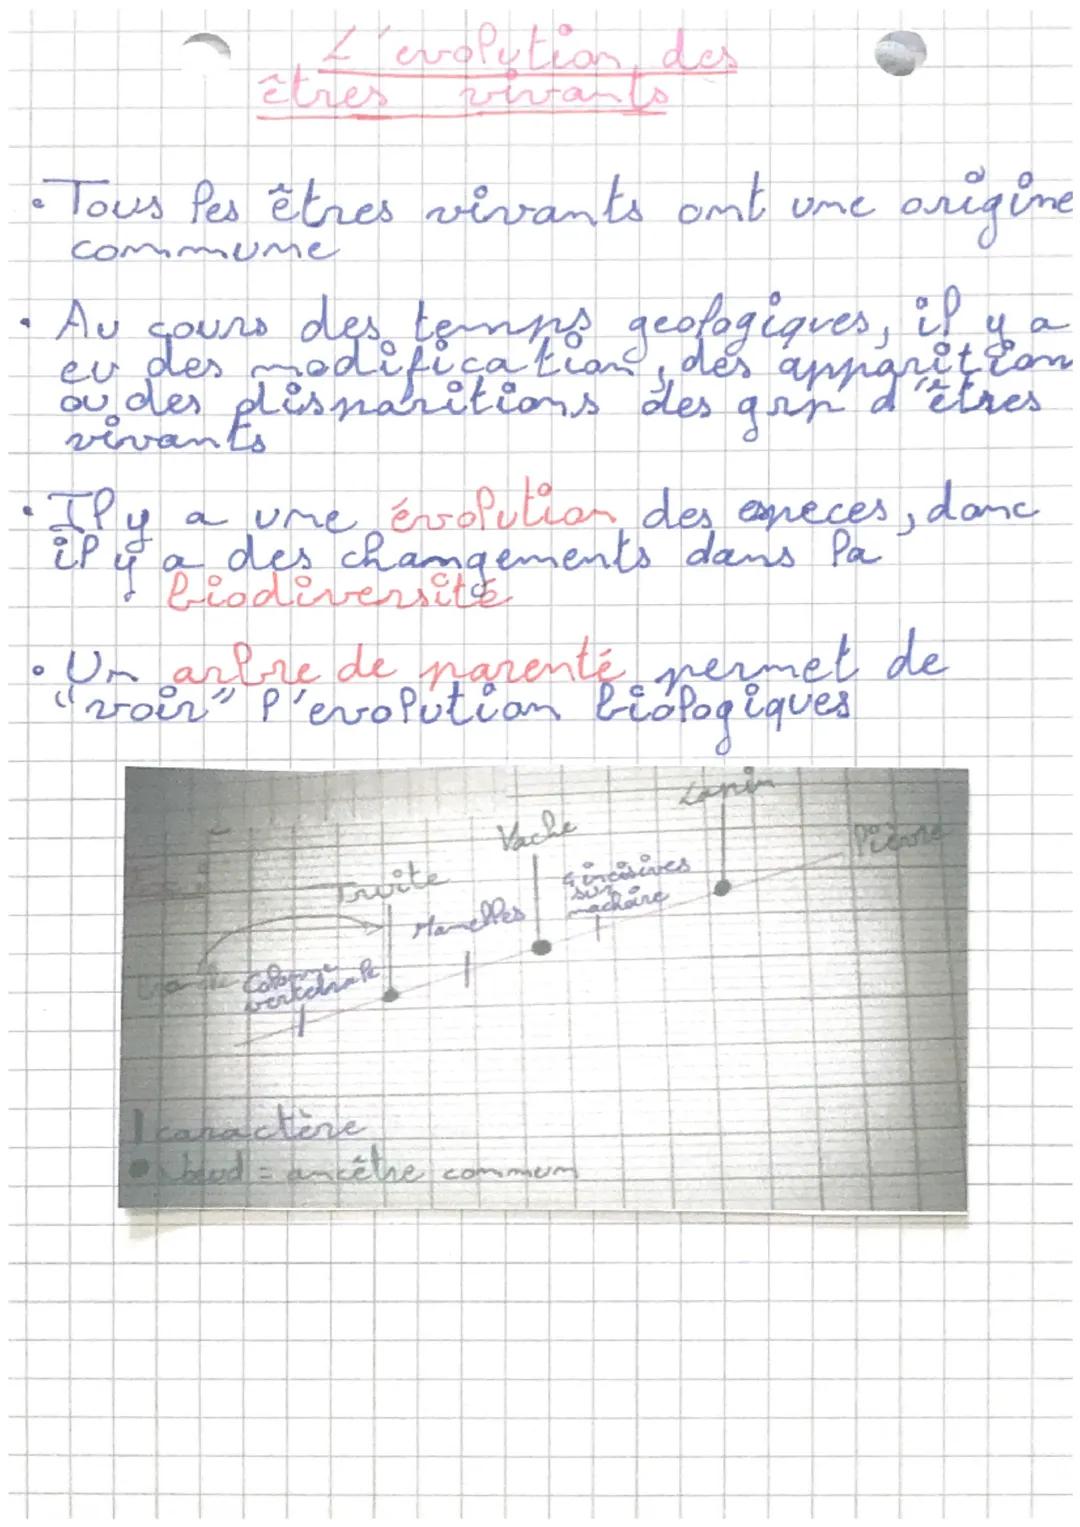 L'evolution des
êtres vivants
• Tous les êtres vivants ont une origine
commune
• Au cours des temps geologiques, il y a
eu des modification, des apparition
ou des disparitions des grp d'êtres
vivants
• Il y a une évolution des especes, donc
il y a des changements dans la
biodiversité
• Un arbre de parenté permet de
"voir" l'evolution biologiques
Lapin
Vache
Lièvre
Truite
4 incisives
sur
machoire
Mamelles
Colonne
vertebrale
| caractère
• = ancêtre commun